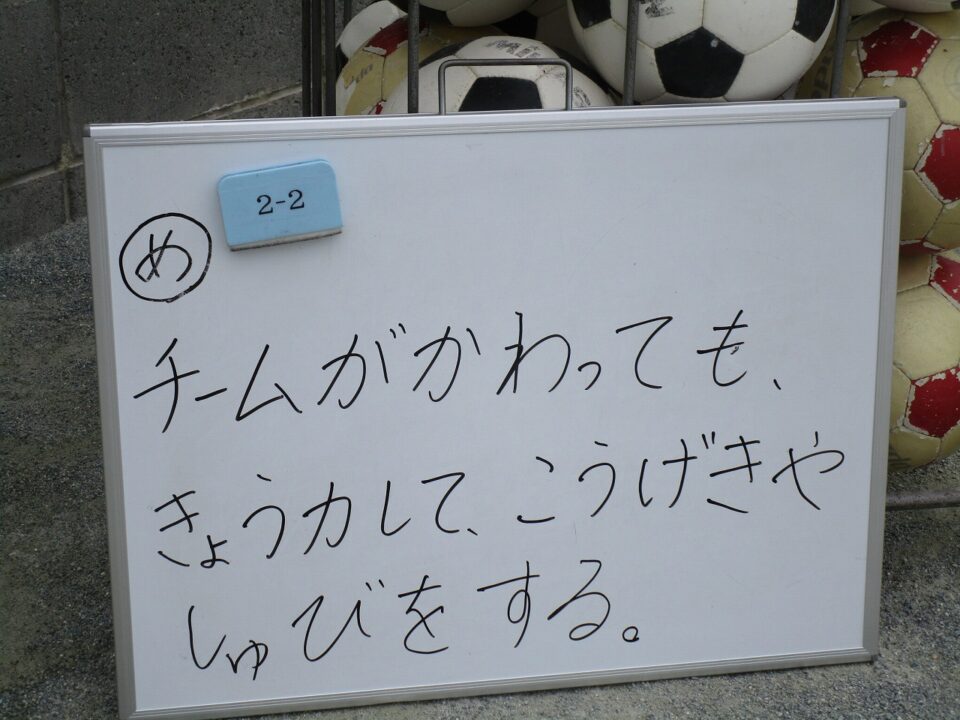 2-2
め
チームがかわっても、
きょう力して、こうげきや
しゅびをする。